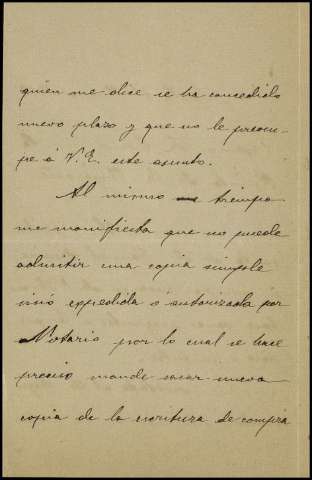 quien me dice se ha concedido
nuevo plazo y que no le preocu-
pe á V. E. este asunto.
Al mismo tiempo
me manifiesta que no puede
admitir una copia simple
sinó expedida ó autorizada por
Notario por lo cual se hace
preciso mande sacar nueva
copia de la escritura de compra